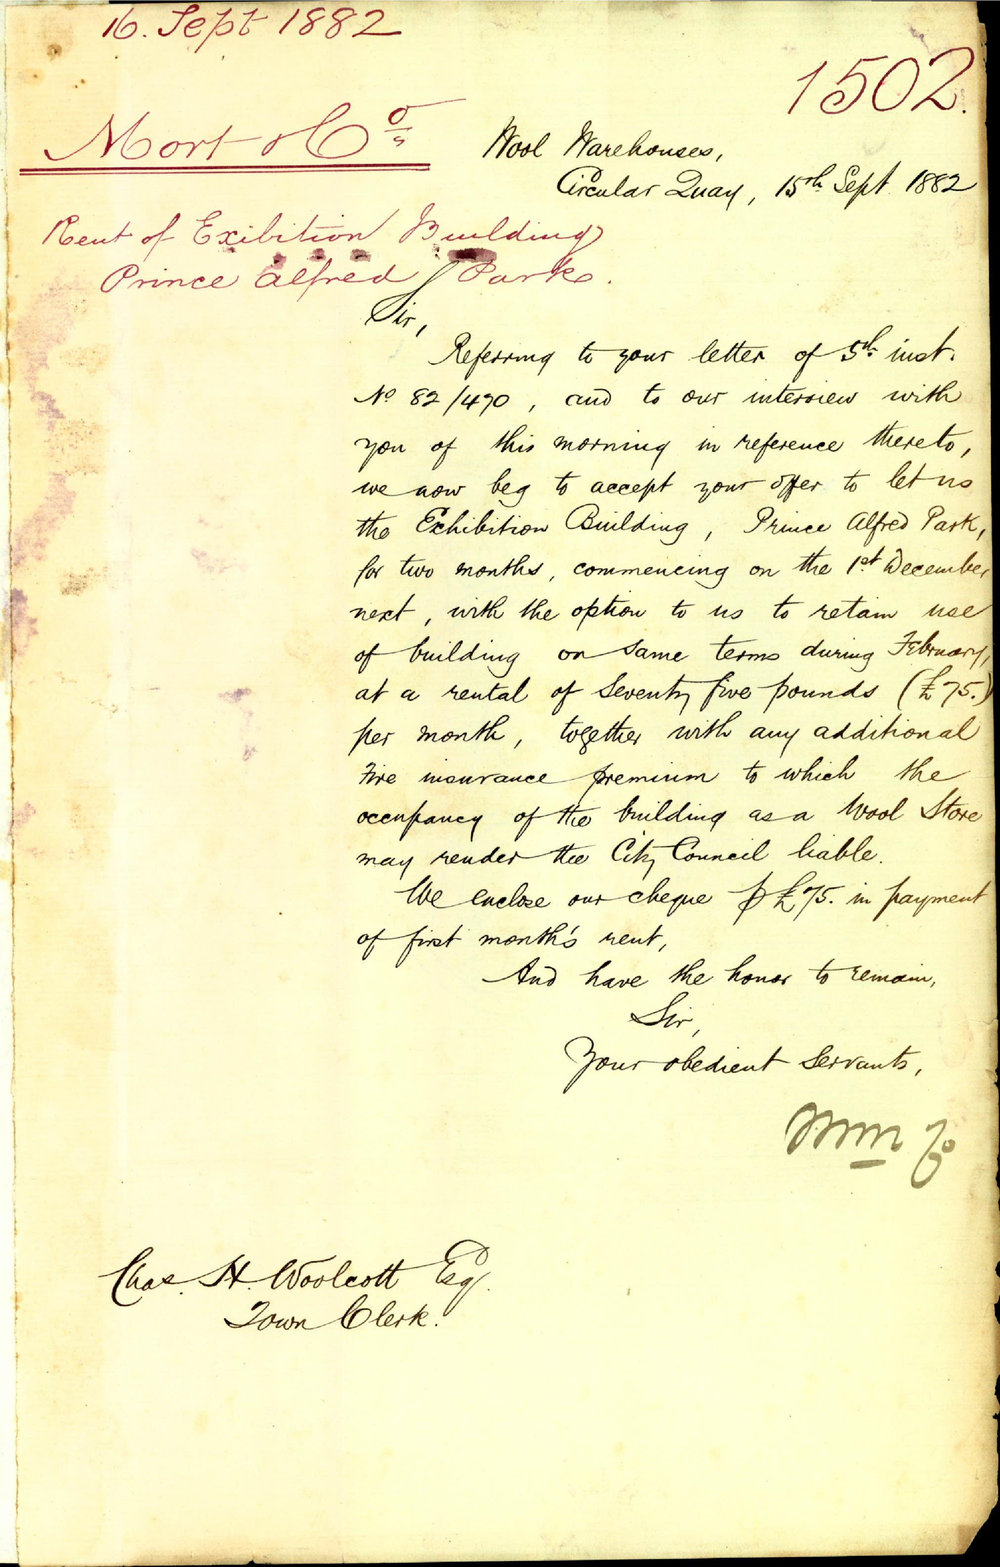 16. Sept 1882
1502.
Mort & Co
Wool Warehouses,
Circular Quay, 15th Sept. 1882
Rent of Exibition Building
Prince Alfred Park.
Sir,
Referring to your letter of 5th inst.
No 82/490, and to our interview with
you of this morning in reference thereto,
we now beg to accept your offer to let us
the Exhibition Building, Prince Alfred Park,
for two months, commencing on the 1st December
next, with the option to us to retain use
of building on same terms during February,
at a rental of Seventy five pounds (£75.)
per month, together with any additional
Fire insurance premium to which the
occupancy of the building as a Wool Store
may render the City Council liable.
We enclose our cheque for £75. in payment
of first month's rent,
And have the honor to remain,
Sir,
Your obedient Servants,
Co
Chas. H. Woolcott Esq.
Town Clerk.